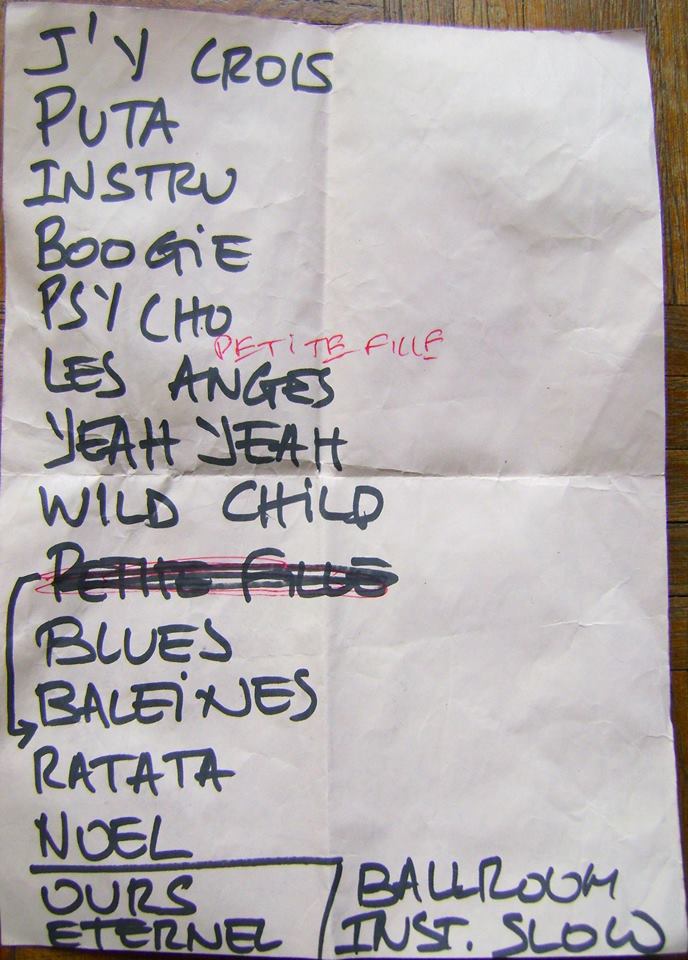 J'Y CROIS
PUTA
INSTRU
BOOGIE
PSYCHO
PETITE FILLE
LES ANGES
YEAH YEAH
WILD CHILD
PETITE FILLE
BLUES
BALEINES
RATATA
NOEL
OURS
ETERNEL
BALLROOM
INST. SLOW